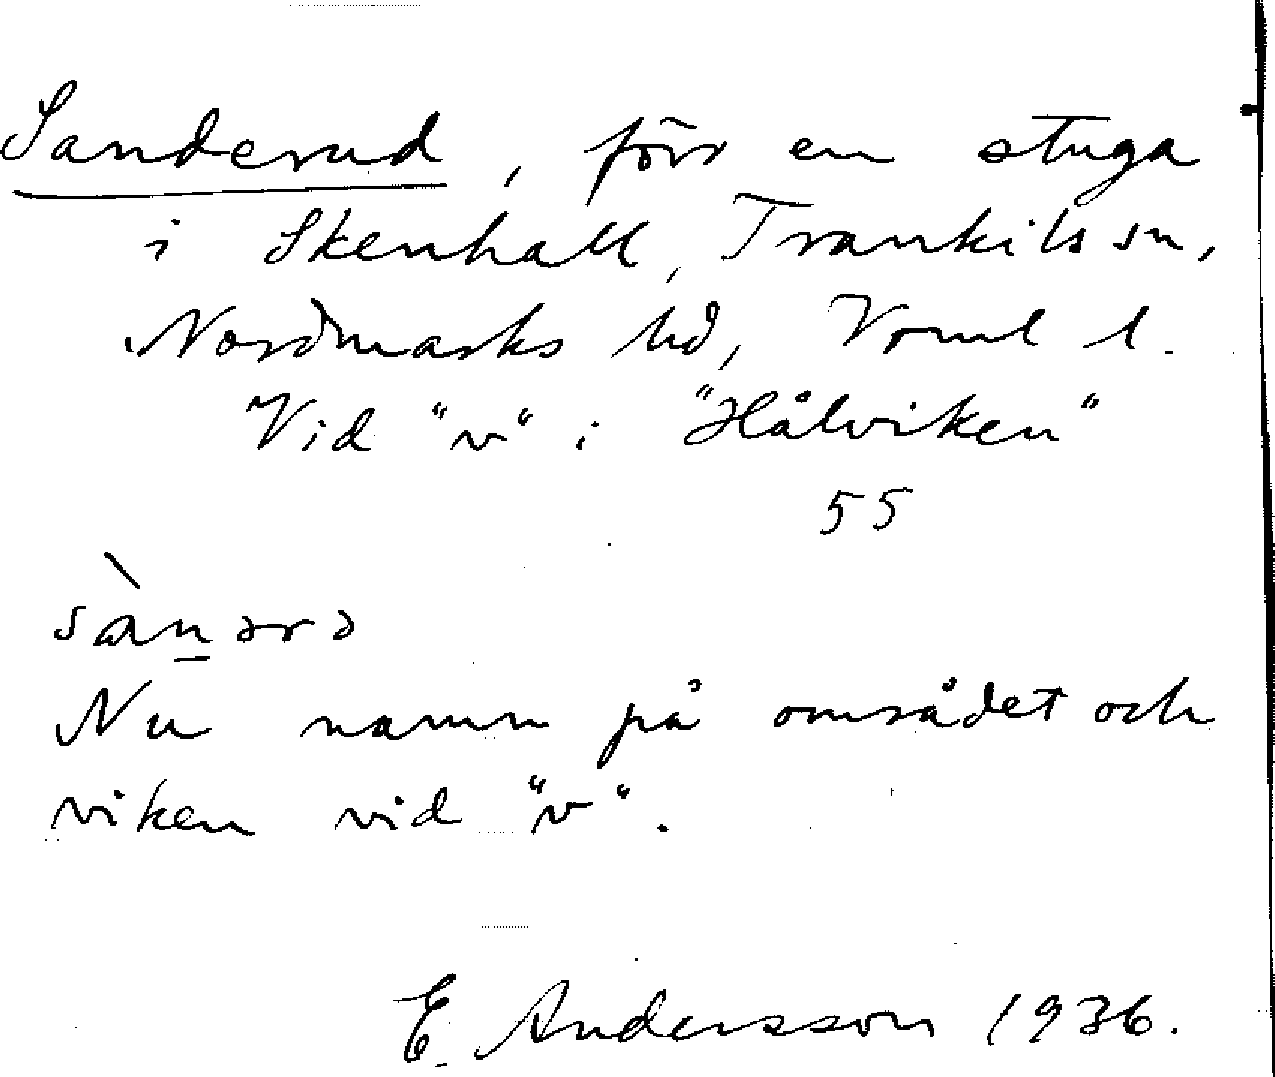 Sanderud, förr en stuga
i Skenhall, Trankils sn,
Nordmarks hd, Vrml l.
Vid "v" i "Hålviken"
55
sànərə
Nu namn på området och
viken vid "v".
E. Andersson 1936.